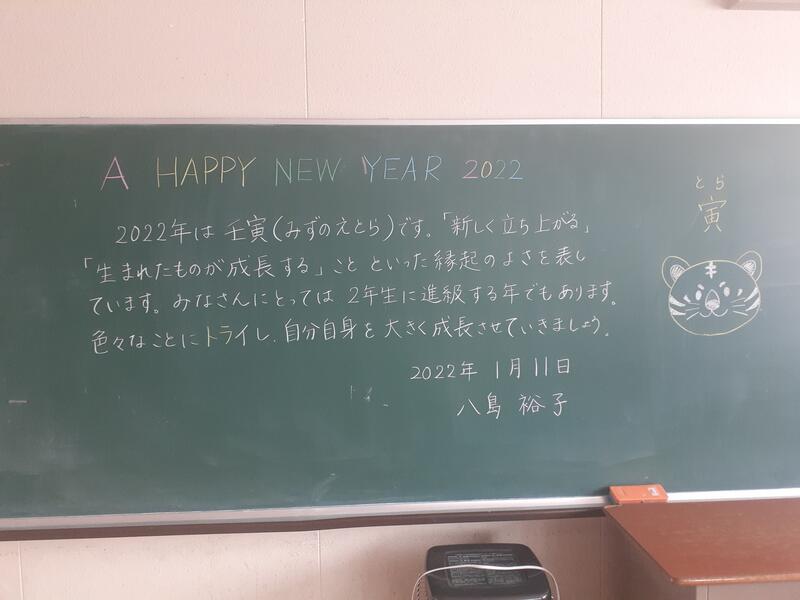 A HAPPY NEW YEAR 2022
とら
寅
2022年は 壬寅(みずのえとら)です。「新しく立ち上がる」
「生まれたものが成長する」こと といった縁起のよさを表し
ています。みなさんにとっては 2年生に進級する年でもあります。
色々なことにトライし、自分自身を大きく成長させていきましょう。
2022年 1月11日
八島 裕子